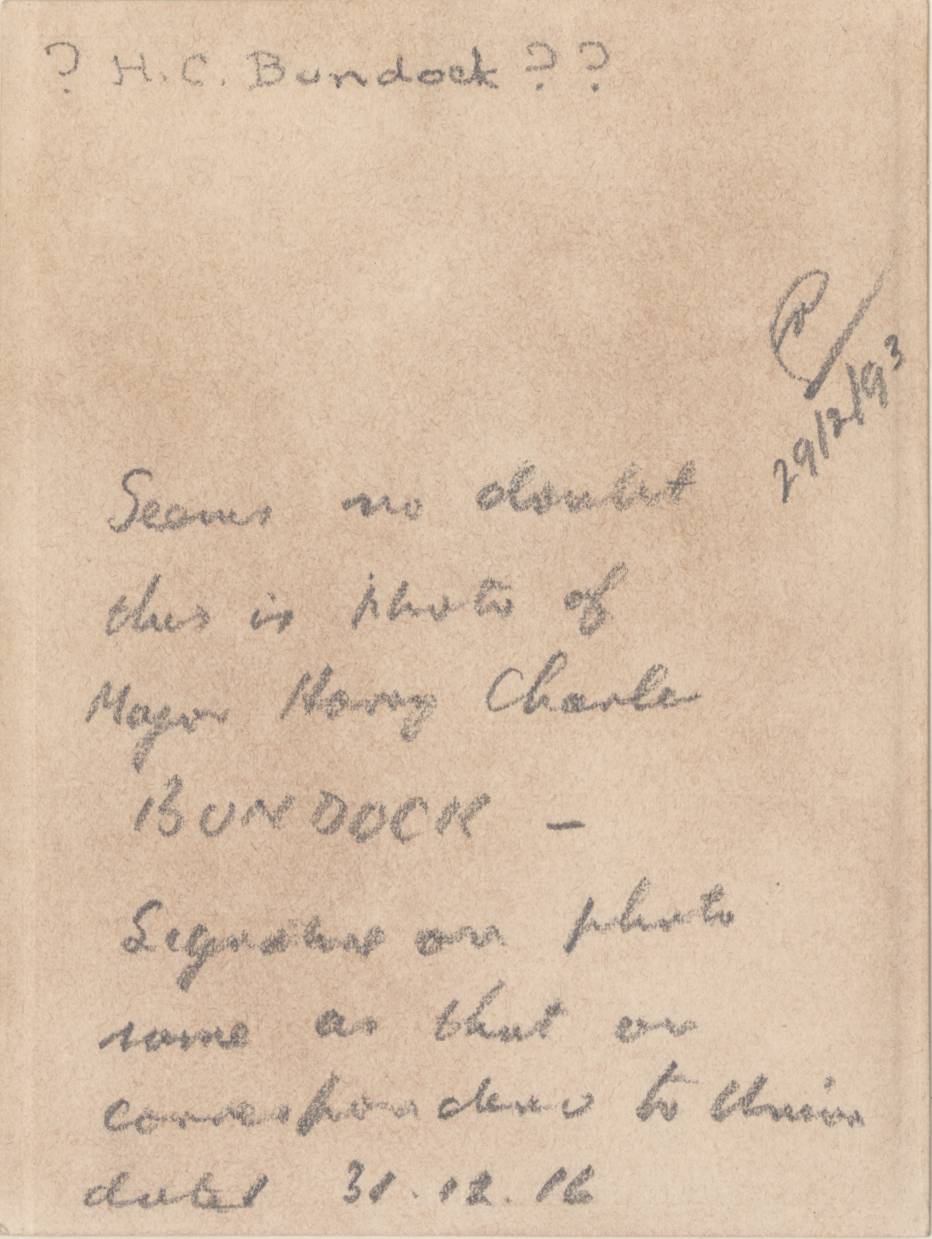 ? H. C. Bundock ? ?
29/2/93
Seems no doubt
this is photo of
Major Harry Charle
BUNDOCK –
Signature on photo
same as that on
correspondence to Union
dated 31.12.16